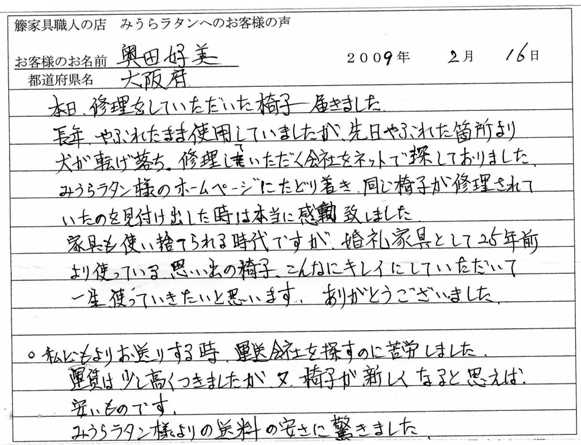 籐家具職人の店　みうらラタンへのお客様の声
お客様のお名前　奥田好美　2009年　2月　16日
都道府県名　大阪府
本日、修理をしていただいた椅子届きました
長年、やぶれたまま使用していましたが、先日やぶれた箇所より
犬が転げ落ち、修理していただく会社をネットで探しておりました。
みうらラタン様のホームページにたどり着き、同じ椅子が修理されて
いたのを見付け出した時は本当に感動致しました。
家具も使い捨てられる時代ですが、婚礼家具として25年前
より使っている、思い出の椅子、こんなにキレイにしていただいて
一生使っていきたいと思います。ありがとうございました。
○私どもよりお送りする時、運送会社を探すのに苦労しました。
運賃は少し高くつきましたが、又、椅子が新しくなると思えば、
安いものです。
みうらラタン様よりの送料の安さに驚きました。